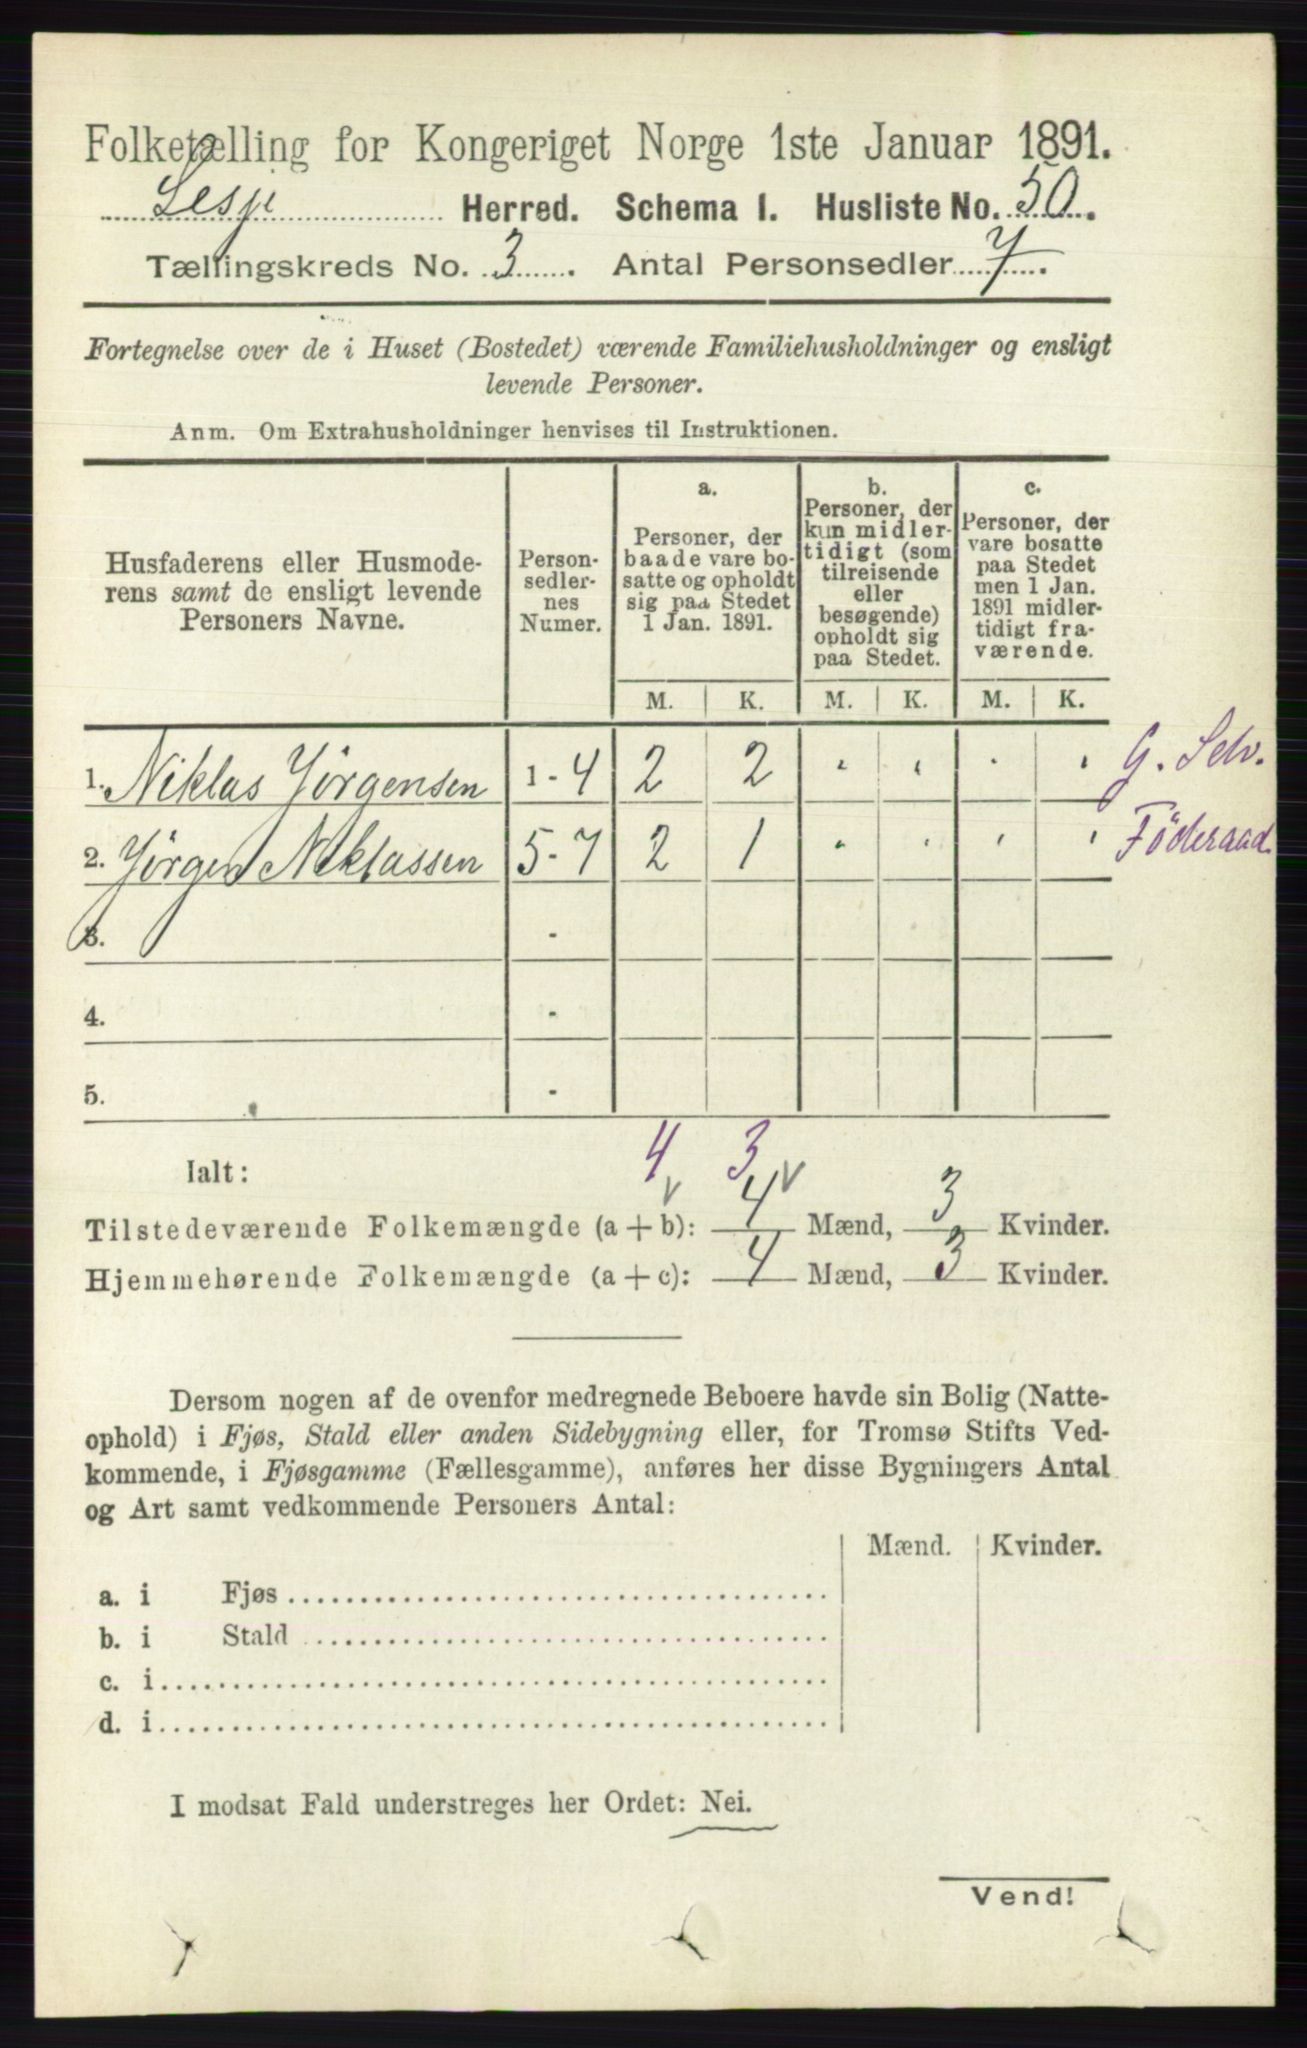 Folketælling for Kongeriget Norge 1ste Januar 1891.
Lesje Herred. Schema 1. Husliste No. 50.
Tællingskreds No. 3. Antal Personsedler 7.
Fortegnelse over de i Huset (Bostedet) værende Familiehusholdninger og ensligt
levende Personer.
Anm. Om Extrahusholdninger henvises til Instruktionen.
Husfaderens eller Husmode-
rens samt de ensligt levende
Personers Navne.
Person-
sedler-
nes
Numer.
a.
Personer, der
baade vare bo-
satte og opholdt
sig paa Stedet
1 Jan. 1891.
b.
Personer, der
kun midler-
tidigt (som
tilreisende
eller
besøgende)
opholdt sig
paa Stedet.
c.
Personer, der
vare bosatte
paa Stedet
men 1 Jan.
1891 midler-
tidigt fra-
værende.
M. K. M. K. M. K.
1. Niklas Jörgensen 1 - 4 2 2 " " " " G. Selv.
2. Jörgen Niklassen 5 - 7 2 1 " " " " Föderaad.
3. -
4. -
5. -
4 3
Ialt:
Tilstedeværende Folkemængde (a + b): 4 Mænd, 3 Kvinder.
Hjemmehørende Folkemængde (a + c): 4 Mænd, 3 Kvinder.
Dersom nogen af de ovenfor medregnede Beboere havde sin Bolig (Natte-
ophold) i Fjøs, Stald eller anden Sidebygning eller, for Tromsø Stifts Ved-
kommende, i Fjøsgamme (Fællesgamme), anføres her disse Bygningers Antal
og Art samt vedkommende Personers Antal:
Mænd. Kvinder.
a. i Fjøs
b. i Stald
c. i
d. i
I modsat Fald understreges her Ordet: Nei.
Vend!